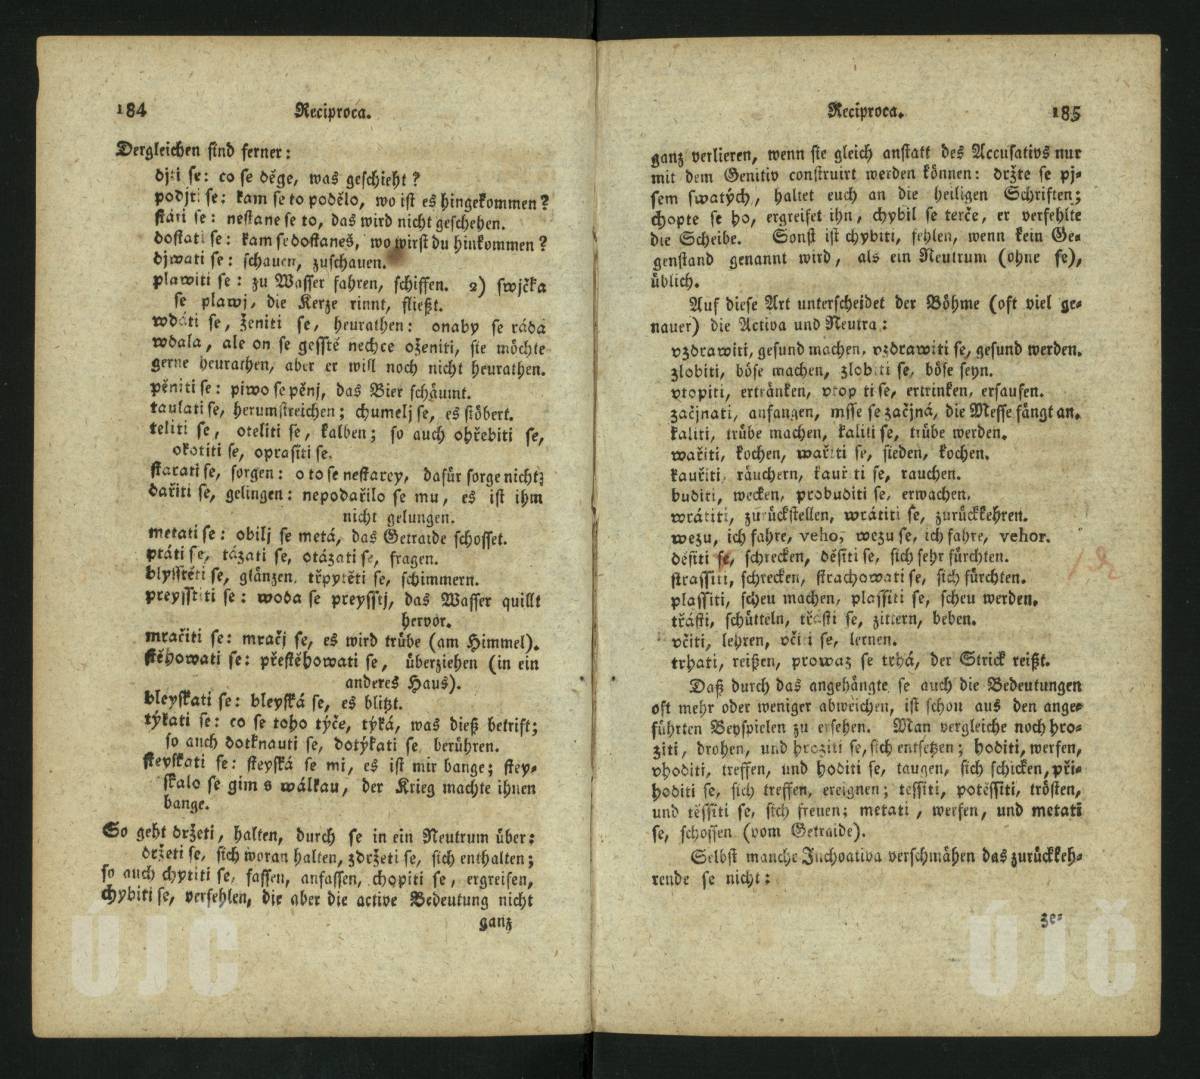 184 Reciproca.
Dergleichen sind ferner:
djti se: co se děge, was geschieht?
podjti se: kam se to podělo, wo ist es hingekommen?
státi se: nestane se to, das wird nicht geschehen.
dostati se: kam se dostaneš, wo wirst du hinkommen?
djwati se: schauen, zuschauen.
plawiti se: zu Wasser fahren, schiffen. 2) swjčka
se plawj, die Kerze rinnt, fließt.
wdáti se, ženiti se, heurathen: onaby se ráda
wdala, ale on se gesstě nechce oženiti, sie möchte
gerne heurathen, aber er will noch nicht heurathen.
pěniti se: piwo se pěnj, das Bier schäumt.
taulati se, herumstreichen; chumelj se, es stöbert.
teliti se, oteliti se, kalben; so auch ohřebiti se,
okotiti se, oprasiti se.
starati se, sorgen: o to se nestarey, dafür sorge nicht;
dařiti se, gelingen: nepodařilo se mu, es ist ihm
nicht gelungen.
metati se: obilj se metá, das Getraide schosset.
ptáti se, tázati se, otázati se, fragen.
blysstěti se, glänzen, třpytěti se, schimmern.
preysstiti se: woda se preysstj, das Wasser quillt
hervor.
mračiti se: mračj se, es wird trübe (am Himmel).
stěhowati se: přestěhowati se, überziehen (in ein
anderes Haus).
bleyskati se: bleyská se, es blitzt.
týkati se: co se toho týče, týká, was dieß betrift;
so auch dotknauti se, dotýkati se, berühren.
steyskati se: steyská se mi, es ist mir bange; stey-
skalo se gim s wálkau, der Krieg machte ihnen
bange.
So geht držeti, halten, durch se in ein Neutrum über:
držeti se, sich woran halten, zdržeti se, sich enthalten;
so auch chytiti se, fassen, anfassen, chopiti se, ergreifen,
chybiti se, verfehlen, die aber die active Bedeutung nicht
ganz
Reciproca. 185
ganz verlieren, wenn sie gleich anstatt des Accusativs nur
mit dem Genitiv construirt werden können: držte se pj-
sem swatých, haltet euch an die heiligen Schriften;
chopte se ho, ergreifet ihn, chybil se terče, er verfehlte
die Scheibe. Sonst ist chybiti, fehlen, wenn kein Ge-
genstand genannt wird, als ein Neutrum (ohne se),
üblich.
Auf diese Art unterscheidet der Böhme (oft viel ge-
nauer) die Activa und Neutra:
vzdrawiti, gesund machen, vzdrawiti se, gesund werden.
zlobiti, böse machen, zlobiti se, böse seyn.
vtopiti, ertränken, vtopiti se, ertrinken, ersaufen.
začjnati, anfangen, msse se začjná, die Messe fängt an.
kaliti, trübe machen, kaliti se, trübe werden.
wařiti, kochen, wařiti se, sieden, kochen.
kauřiti, räuchern, kauřiti se, rauchen.
buditi, wecken, probuditi se, erwachen.
wrátiti, zurückstellen, wrátiti se, zurückkehren.
wezu, ich fahre, veho, wezu se, ich fahre, vehor.
děsiti se, schrecken, děsiti se, sich sehr fürchten.
strassiti, schrecken, strachowati se, sich fürchten.
plassiti, scheu machen, plassiti se, scheu werden.
třásti, schütteln, třásti se, zittern, beben.
včiti, lehren, včiti se, lernen.
trhati, reißen, prowaz se trhá, der Strick reißt.
Daß durch das angehängte se auch die Bedeutungen
oft mehr oder weniger abweichen, ist schon aus den ange-
führten Beyspielen zu ersehen. Man vergleiche noch hro-
ziti, drohen, und hroziti se, sich entsetzen; hoditi, werfen,
vhoditi, treffen, und hoditi se, taugen, sich schicken, při-
hoditi se, sich treffen, ereignen; těssiti, potěssiti, trösten,
und těssiti se, sich freuen; metati, werfen, und metati
se, schossen (vom Getraide).
Selbst manche Inchoativa verschmähen das zurückkeh-
rende se nicht:
ze-
ÚJČ
ÚJČ